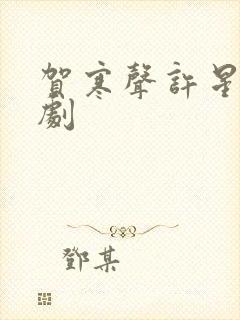 賀寒聲許星
劇
鄧某